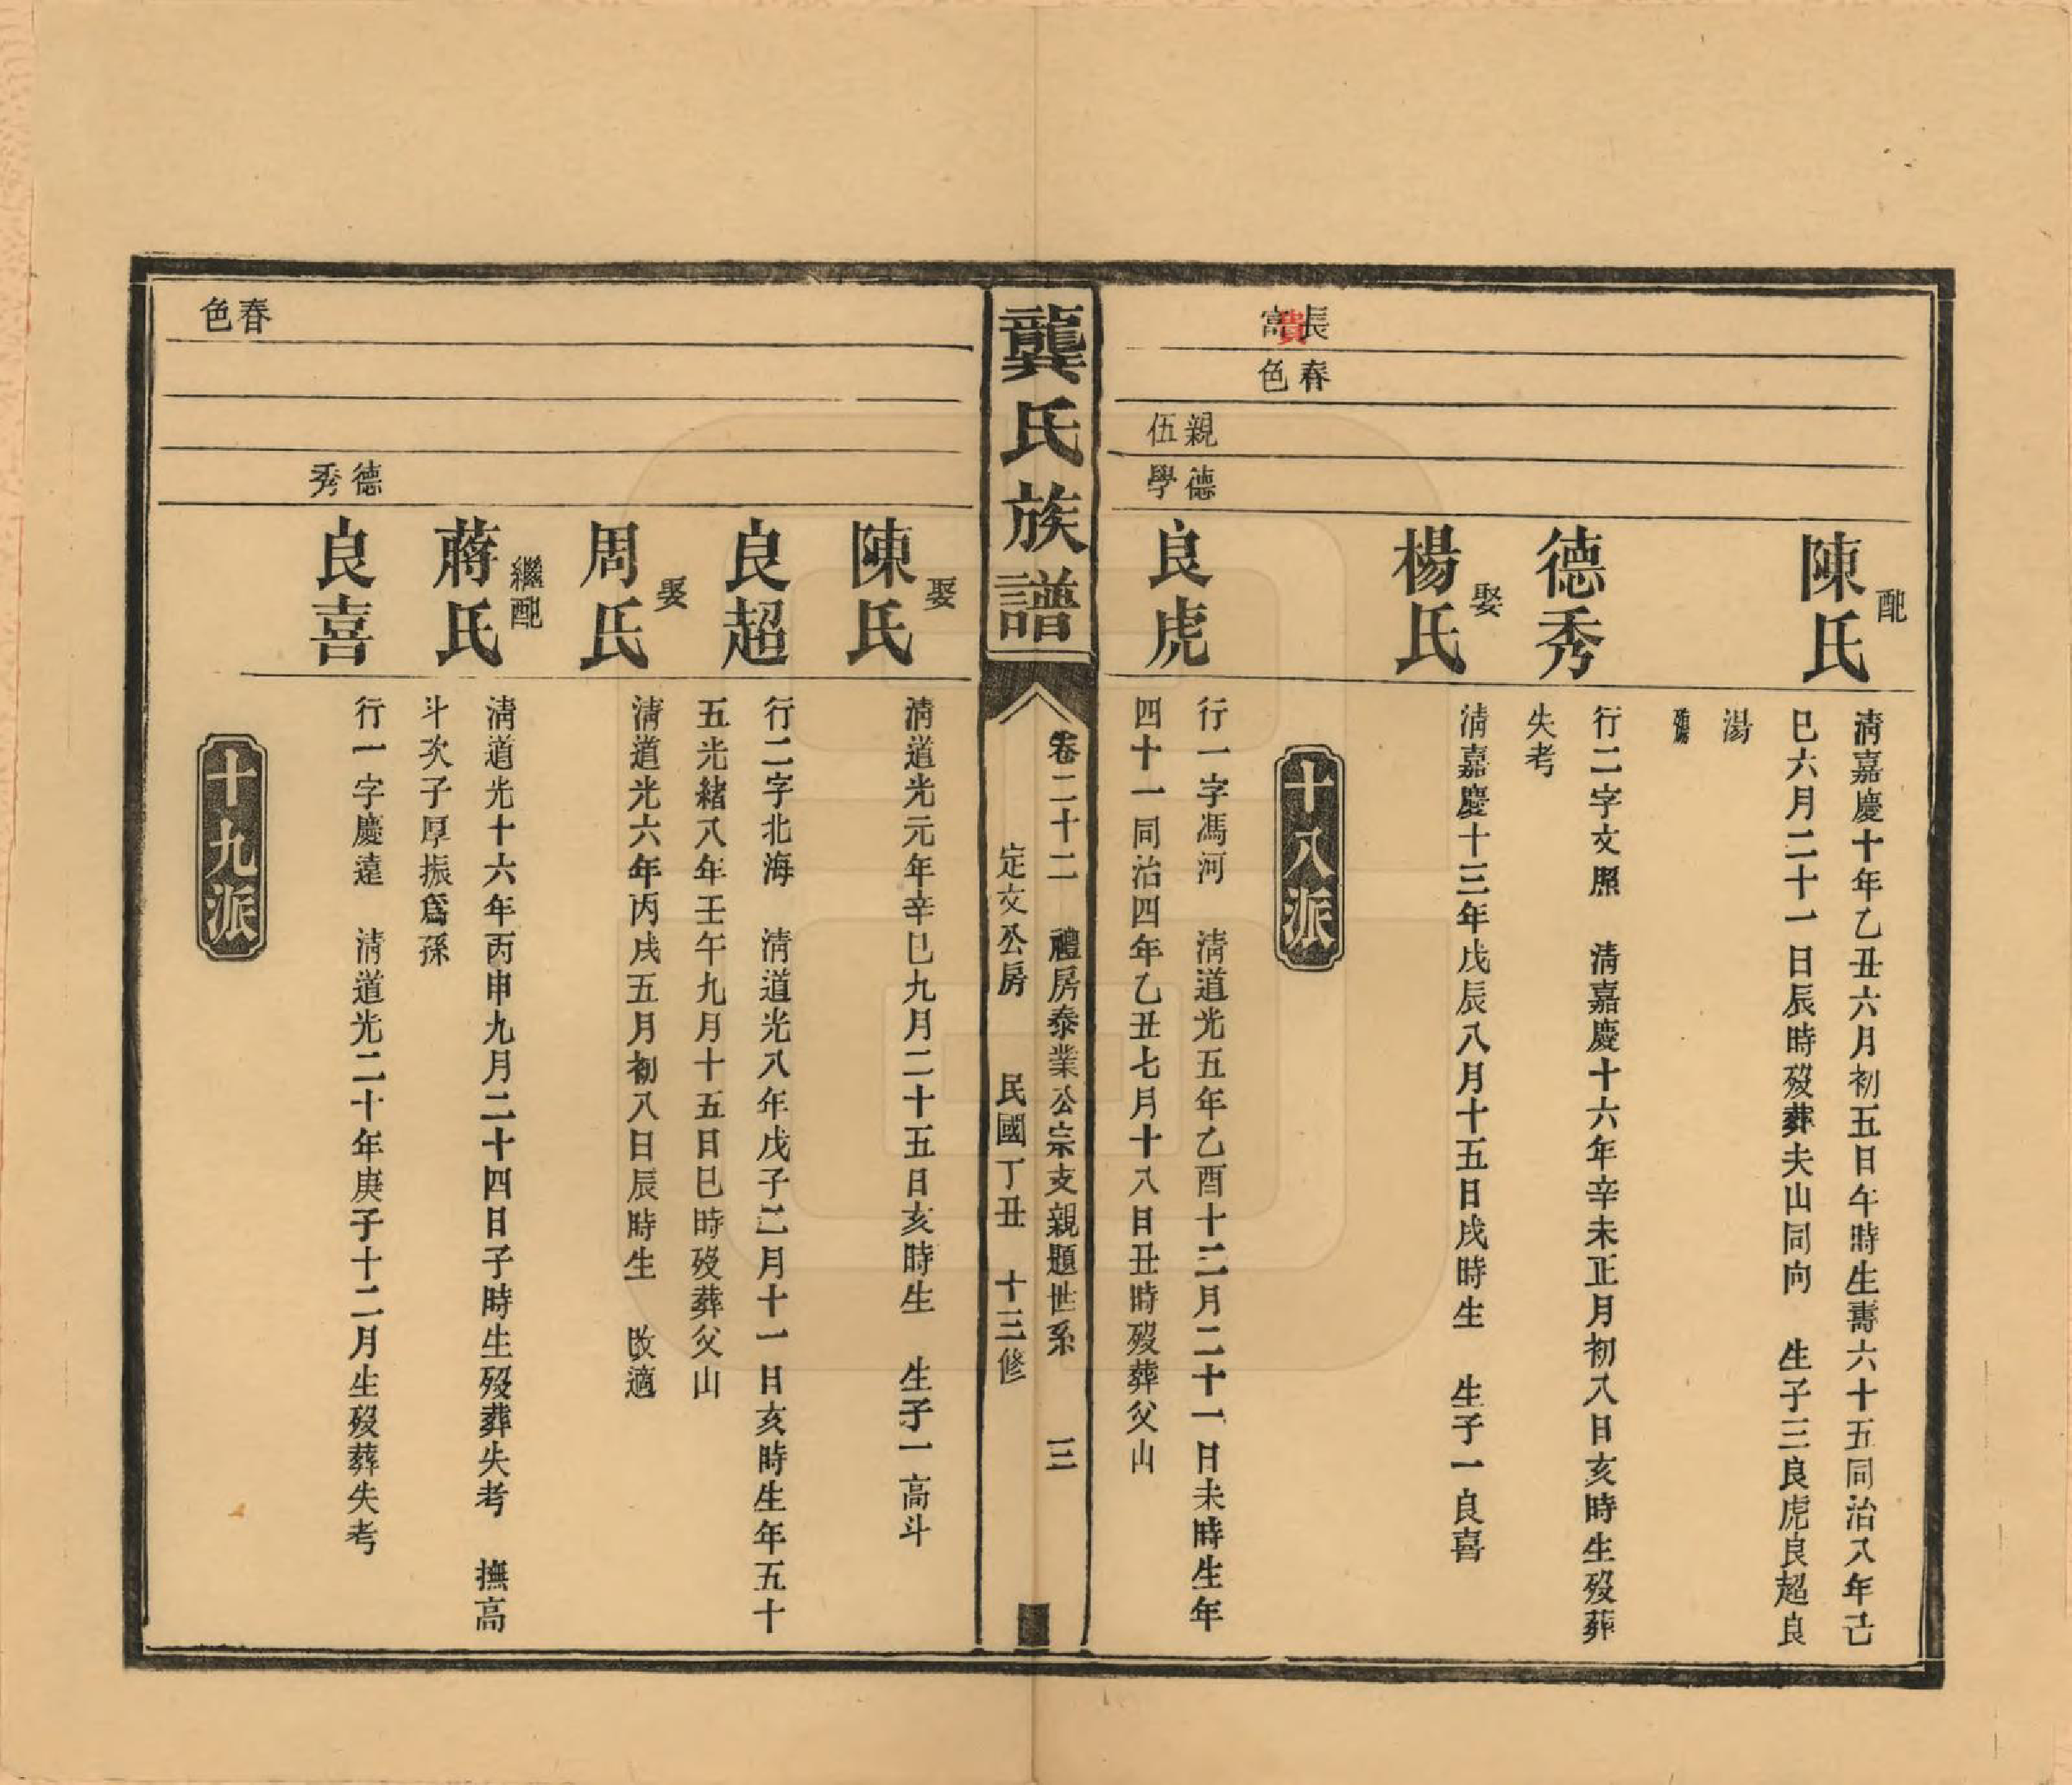 配
陳氏
清嘉慶十年乙丑六月初五日午時生壽六十五同治八年己
巳六月二十一日辰時歿葬夫山同向　生子三良虎良超良
湯
德秀
行二字文照　清嘉慶十六年辛未正月初八日亥時生歿葬
失考
娶
楊氏
清嘉慶十三年戊辰八月十五日戌時生　生子一良喜
長富
貴
春色
十八派
親伍
德學
良虎
行一字馮河　清道光五年乙酉十二月二十一日未時生年
四十一同治四年乙丑七月十八日丑時歿葬父山
龔氏族譜
卷二十二　禮房泰業公宗支親題世系　三
定文公房　民國丁丑　十三修
娶
陳氏
清道光元年辛巳九月二十五日亥時生　生子一高斗
良超
行二字北海　清道光八年戊子二月十一日亥時生年五十
五光緒八年壬午九月十五日巳時歿葬父山
娶
周氏
清道光六年丙戌五月初八日辰時生　改適
繼配
蔣氏
清道光十六年丙申九月二十四日子時生歿葬失考　撫高
斗次子厚振爲孫
德秀
良喜
行一字慶遠　清道光二十年庚子十二月生歿葬失考
春色
十九派